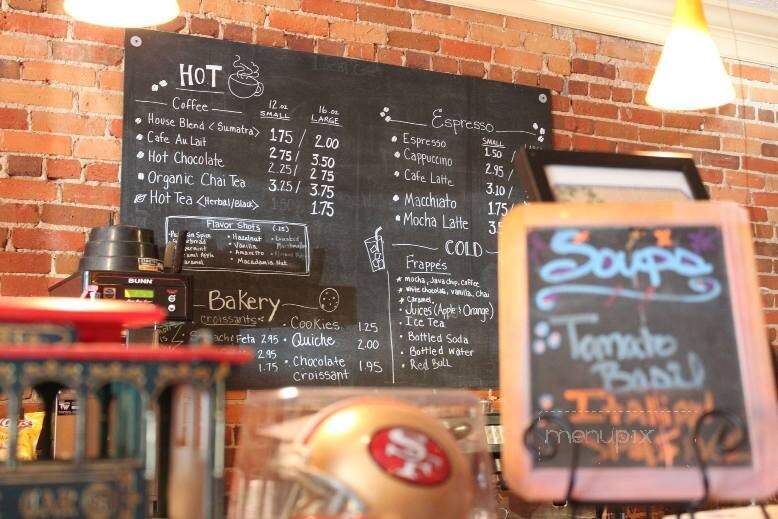 HOT
Coffee
12.oz SMALL
16.oz LARGE
House Blend <Sumatra> 1.75 / 2.00
Cafe Au Lait 2.75 / 3.50
Hot Chocolate 2.25 / 2.75
Organic Chai Tea 3.25 / 3.75
Hot Tea <Herbal/Black> 1.75
Flavor Shots
Hazelnut
Vanilla
Amaretto
Macadamia Nut
Espresso
SMALL
Espresso 1.50
Cappuccino 2.95 /
Cafe Latte 3.10 /
Macchiato
Mocha Latte
COLD
Frappe's
mocha, Java chip, Coffee
white chocolate, vanilla, Chai
Caramel
Juices (Apple & Orange)
Ice Tea
Bottled Soda
Bottled Water
Red Bull
Bakery
Croissants
Feta 2.95
2.95
1.75
Cookies 1.25
Quiche 2.00
Chocolate
Croissant 1.95
BUNN
Soups
Tomato
Basil
Italian
menupix
SF
CAR